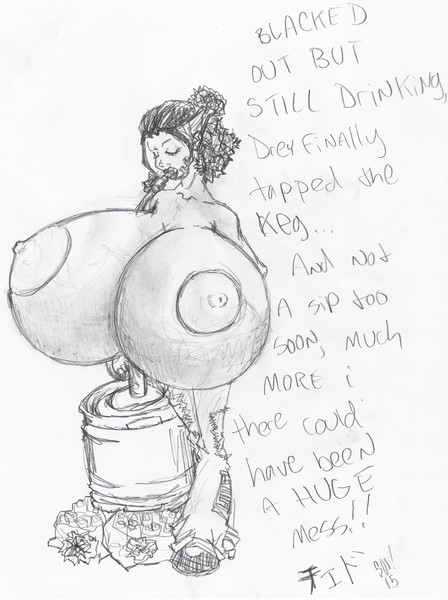 BLACKED
OUT BUT
STILL DrinKing,
Drew Finally
tapped the
Keg...
And Not
A sip too
soon, much
MORE i
there could
have been
A HUGE
mess!!
チェド
15